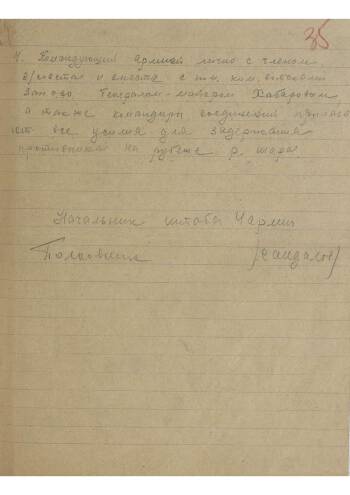 35
4. Командующий армией лично с членом
в/совета и вместе с пом. ком. войсками
Запово генералом-майором Хабаровым,
а также командиры соединений прилага-
ют все усилия для задержания
противника на рубеже р. Шара.
Начальник штаба 4 армии
Полковник (Сандалов)